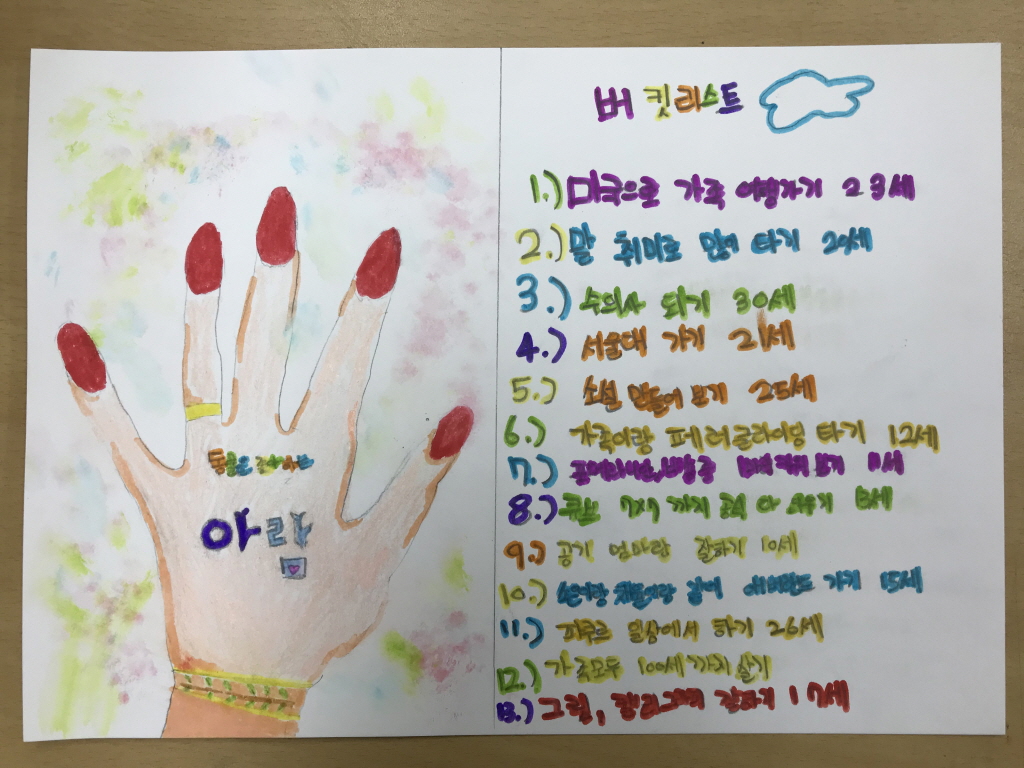 아라
버킷리스트
1.) 미국으로 가족 여행가기 23세
2.) 말 취미로 많이 타기 20세
3.) 수의사 되기 30세
4.) 서울대 가기 21세
5.) 소설 만들어 보기 25세
6.) 가족이랑 페러글라이딩 타기 12세
7.) 보기 11세
8.) 큐브 7x7 까지
9.) 공기 엄마랑 잘하기 10세
10.) 같이 에버랜드 가기 15세
11.) 파쿠르 일상에서 하기 26세
12.) 가족모두 100세까지 살기
13.) 그림, 잘하기 17세